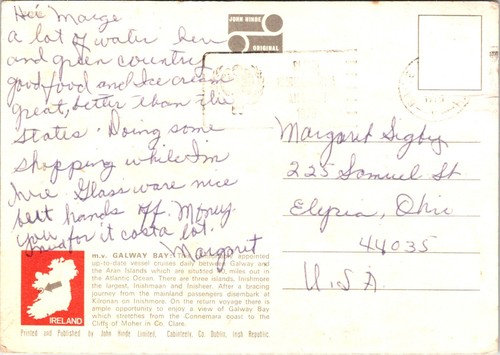 Hee Marge
a lot of water here
and green country
good food and Ice cream
great, better than the
States. Doing some
shopping while I'm
here. Glassware nice
but hands off. Money
you need for it costa lot.
Margaret
JOHN HINDE
ORIGINAL
Margaret Sigby
225 Samuel St
Elyria, Ohio
44035
U.S.A
m.v. GALWAY BAY: appointed
up-to-date vessel cruises daily between Galway and
the Aran Islands which are situated 30 miles out in
the Atlantic Ocean. There are three islands, Inishmore
the largest, Inishmaan and Inisheer. After a bracing
journey from the mainland passengers disembark at
Kilronan on Inishmore. On the return voyage there is
ample opportunity to enjoy a view of Galway Bay
which stretches from the Connemara coast to the
Cliffs of Moher in Co. Clare.
IRELAND
Printed and Published by John Hinde Limited, Cabinteely, Co. Dublin, Irish Republic.